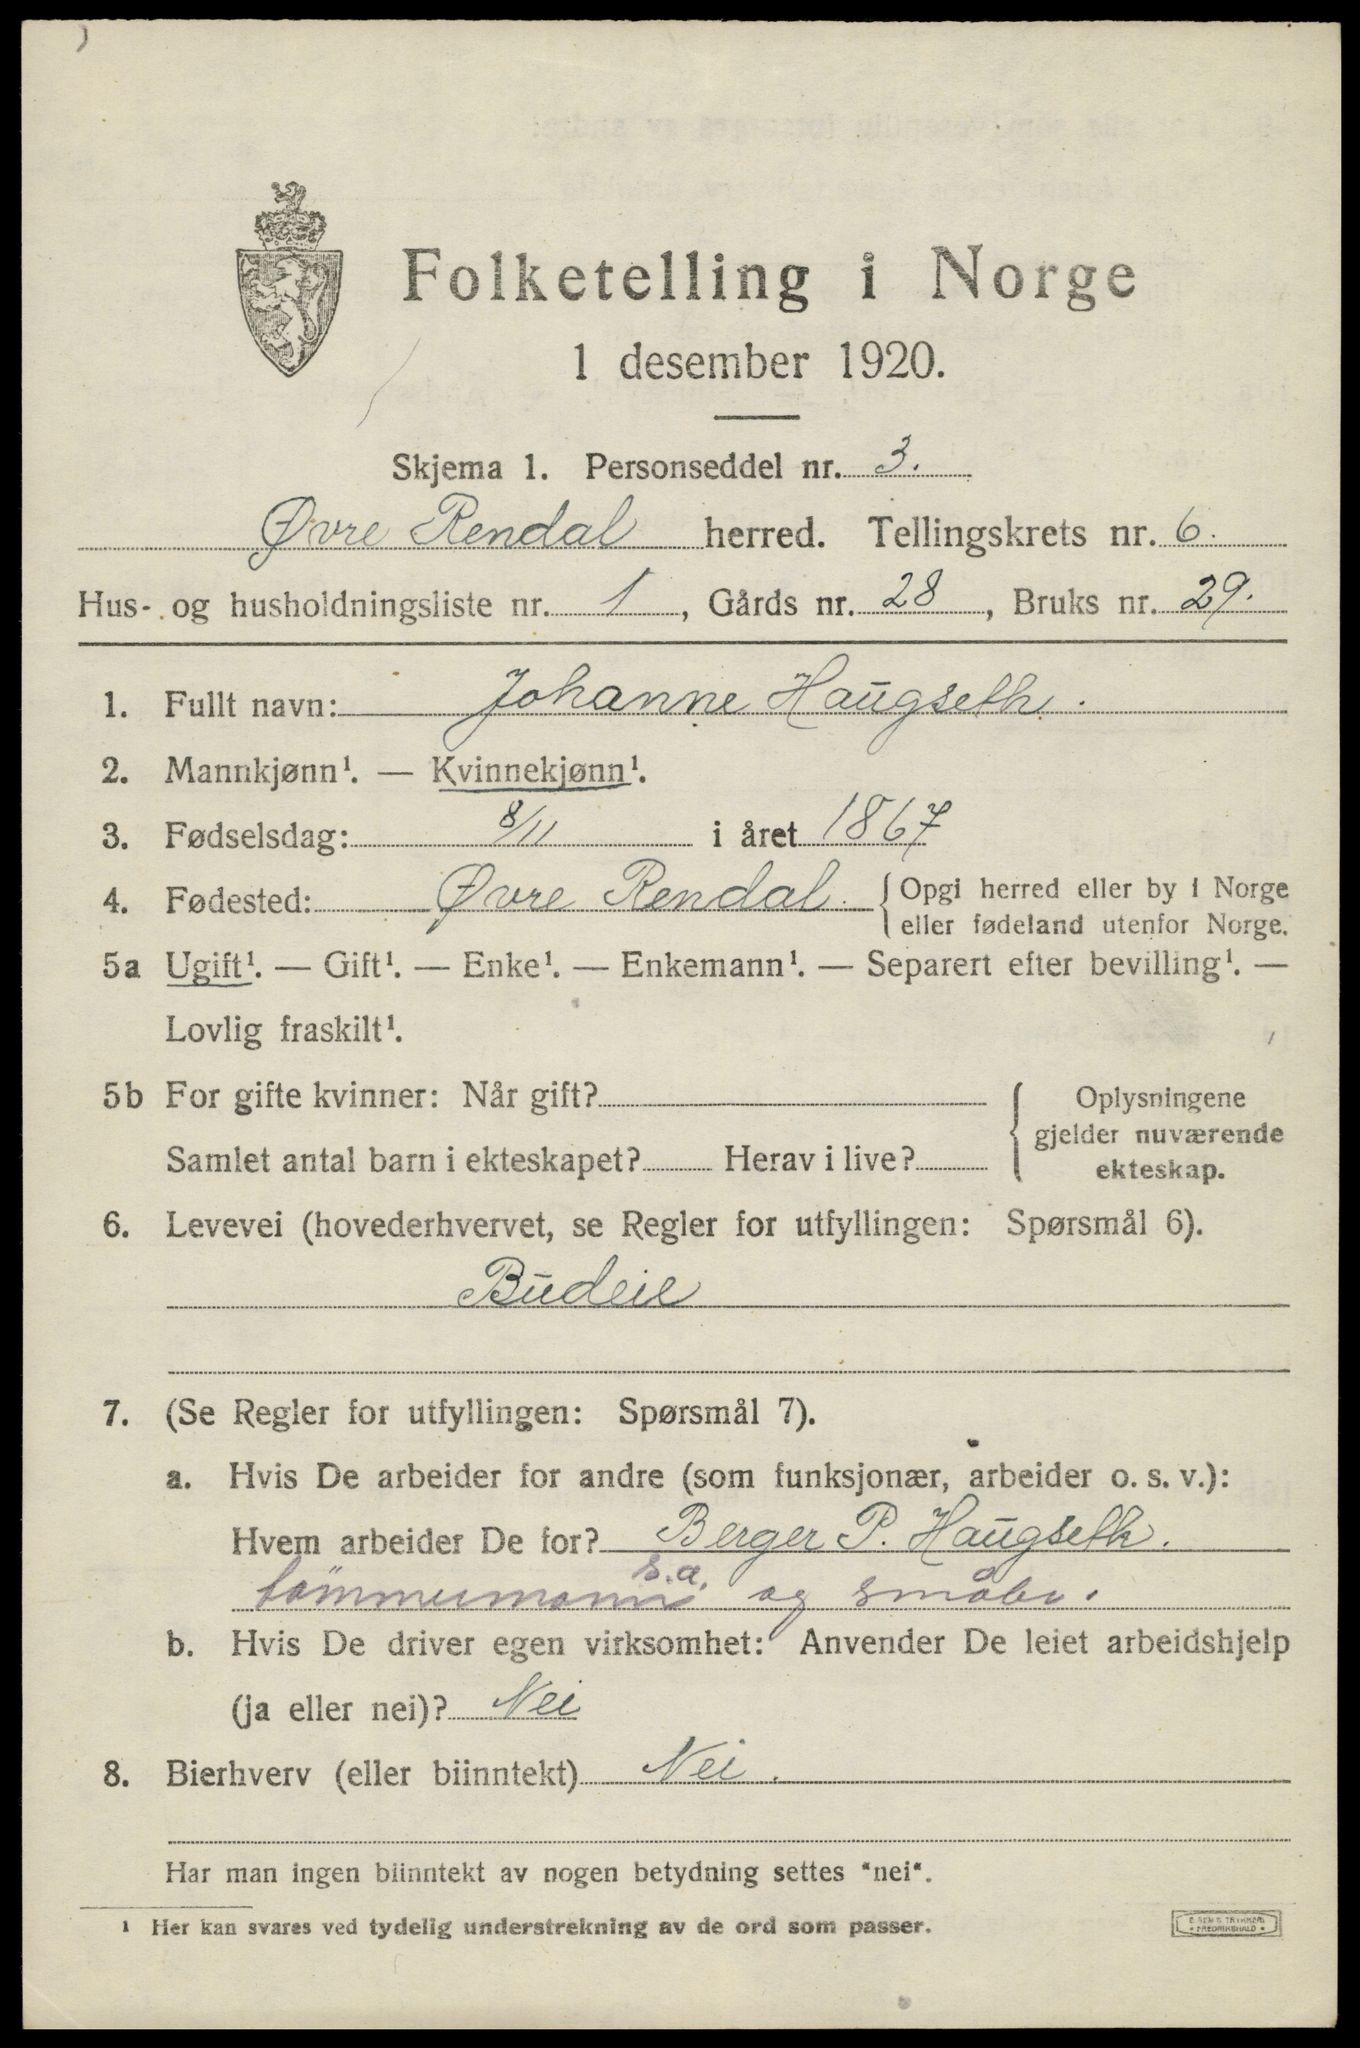 Folketelling i Norge
1 desember 1920.
Skjema 1. Personseddel nr. 3.
Øvre Rendal herred. Tellingskrets nr. 6.
Hus- og husholdningsliste nr. 1, Gårds nr. 28, Bruks nr. 29.
1. Fullt navn: Johanne Haugseth.
2. Mannkjønn¹. — Kvinnekjønn¹.
3. Fødselsdag: 8/11 i året 1867
4. Fødested: Øvre Rendal. { Opgi herred eller by i Norge
eller fødeland utenfor Norge.
5a Ugift¹. — Gift¹. — Enke¹. — Enkemann¹. — Separert efter bevilling¹. —
Lovlig fraskilt¹.
5b For gifte kvinner: Når gift?
Samlet antal barn i ekteskapet? Herav i live?
Oplysningene
gjelder nuværende
ekteskap.
6. Levevei (hovederhvervet, se Regler for utfyllingen: Spørsmål 6).
Budeie
7. (Se Regler for utfyllingen: Spørsmål 7).
a. Hvis De arbeider for andre (som funksjonær, arbeider o. s. v.):
Hvem arbeider De for? Berger P. Haugseth.
s.a.
tømmermann og småbr.
b. Hvis De driver egen virksomhet: Anvender De leiet arbeidshjelp
(ja eller nei)? Nei
8. Bierhverv (eller biinntekt) Nei.
Har man ingen biinntekt av nogen betydning settes "nei".
¹ Her kan svares ved tydelig understrekning av de ord som passer.